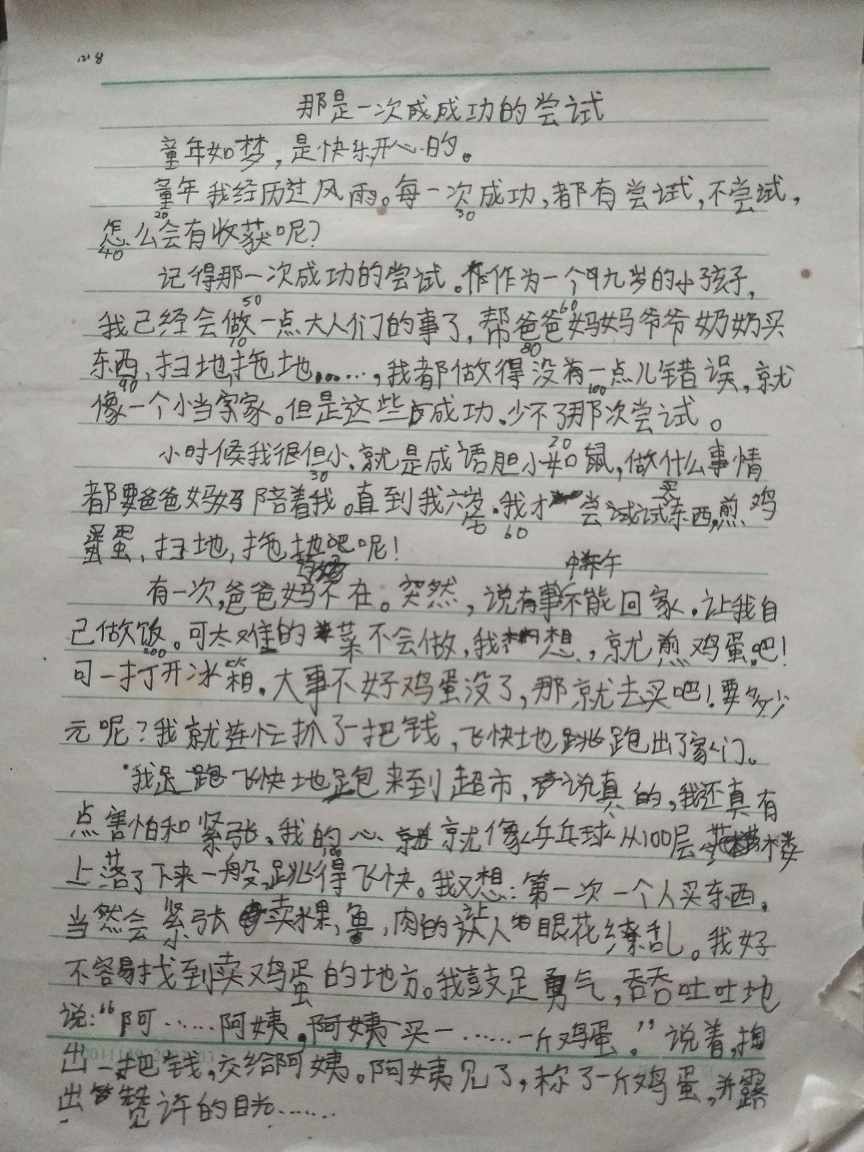 那是一次成成功的尝试
童年如梦，是快乐开心的。
童年我经历过风雨。每一次成功，都有尝试，不尝试，
20 30
怎么会有收获呢？
40
记得那一次成功的尝试。作作为一个九岁的小孩子，
50 60
我已经会做一点大人们的事了，帮爸爸妈妈爷爷奶奶买
70 80
东西，扫地，拖地……，我都做得没有一点儿错误，就
90 100
像一个小当家家。但是这些成功、少不了那次尝试。
20
小时候我很但小、就是成语胆小如鼠，做什么事情
30
都要爸爸妈妈陪着我。直到我六岁。我才尝试试买东西，煎鸡
60
蛋蛋，扫地，拖地吧呢！
有一次，爸爸妈妈不在。突然，说有事中午不能回家。让我自
己做饭。可太难的菜不会做，我想，就煎鸡蛋吧！
200
可一打开冰箱。大事不好鸡蛋没了，那就去买吧！要多少
元呢？我就连忙抓了一把钱，飞快地跳跑出了家门。
我足跑飞快地跑来到超市，说真的，我还真有
点害怕和紧张、我的心就就像乒乓球从100层楼
上落了下来一般，跳得飞快。我又想：第一次一个人买东西，
当然会紧张卖水果，鱼，肉的让人眼花缭乱。我好
不容易找到卖鸡蛋的地方。我鼓足勇气，吞吞吐吐地
说：“阿……阿姨，阿姨买一……一斤鸡蛋。”说着，掏
出一把钱，交给阿姨。阿姨见了，称了一斤鸡蛋，并露
出赞许的目光……